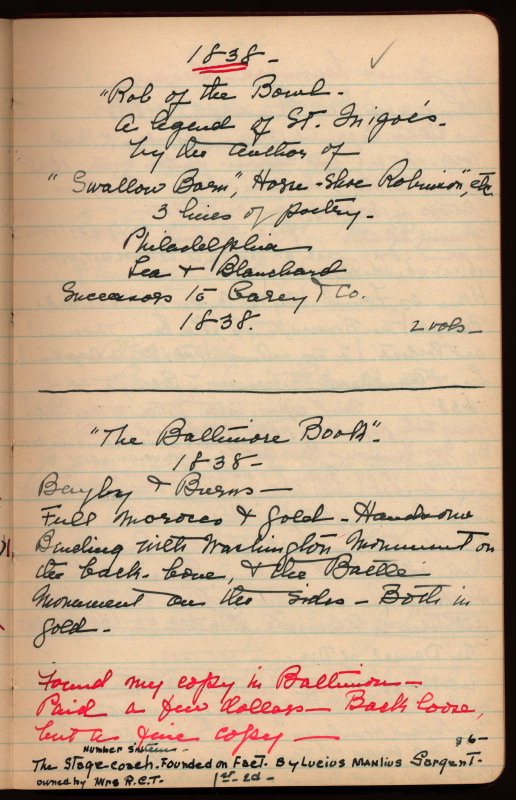 1838-
"Rob of the Bowl-
A legend of St. Inigoe's-
by the author of
"Swallow Barn", Horse-Shoe Robinson", etc.
3 lines of poetry-
Philadelphia
Lea & Blanchard
Successors to Carey & Co.
1838. 2 vols-
"The Baltimore Book".
1838-
Bayly & Burns-
Full morocco & gold - Handsome
Binding with Washington Monument on
the back-bone, & the Battle
Monument on the sides - Both in
gold-
Found my copy in Baltimore-
Paid a few dollars - Back loose,
but as fine copy-
86-
Number Sixteen-
The Stage-coach. Founded on Fact. By Lucius Manlius Sargent-
owned by Mrs R.C.T. 1st-ed-